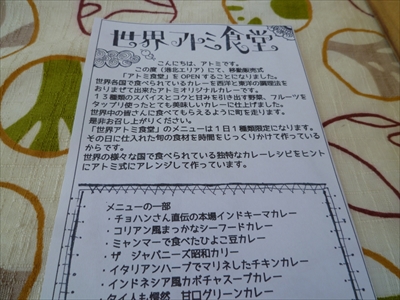 世界アトミ食堂
こんにちは、アトミです。
この度（港北エリア）にて、移動販売の
「アトミ食堂」をOPENすることになりました。
世界各国で食べられているカレーを西洋と東洋の調理法を
おりまぜて出来たアトミオリジナルカレーです。
13種類のスパイスとコクと甘みを引き出す野菜、フルーツを
タップリ使ったとても美味しいカレーに仕上げました。
世界中の皆さんに食べてもらえるように町を走ります。
是非お召し上がりください。
「世界アトミ食堂」のメニューは1日1種類限定になります。
その日に仕入れた旬の食材を時間をじっくりかけて作っている
からです。
世界の様々な国で食べられている独特なカレーレシピをヒント
にアトミ式にアレンジして作っています。
メニューの一部
・チョハンさん直伝の本場インドキーマカレー
・コリアン風まっかなシーフードカレー
・ミャンマーで食べたひよこ豆カレー
・ザ ジャパニーズ昭和カリー
・イタリアンハーブでマリネしたチキンカレー
・インドネシア風カボチャスープカレー
・タイ人も愕然 甘口グリーンカレー